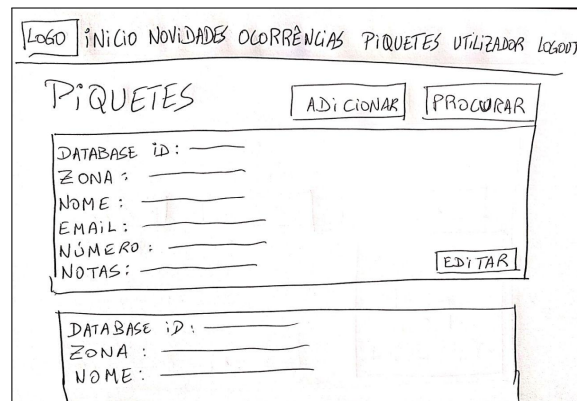 LOGO INICIO NOVIDADES OCORRÊNCIAS PIQUETES UTILIZADOR LOGOUT
PIQUETES ADICIONAR PROCURAR
DATABASE ID:
ZONA:
NOME:
EMAIL:
NÚMERO:
NOTAS:
EDITAR
DATABASE ID:
ZONA:
NOME: